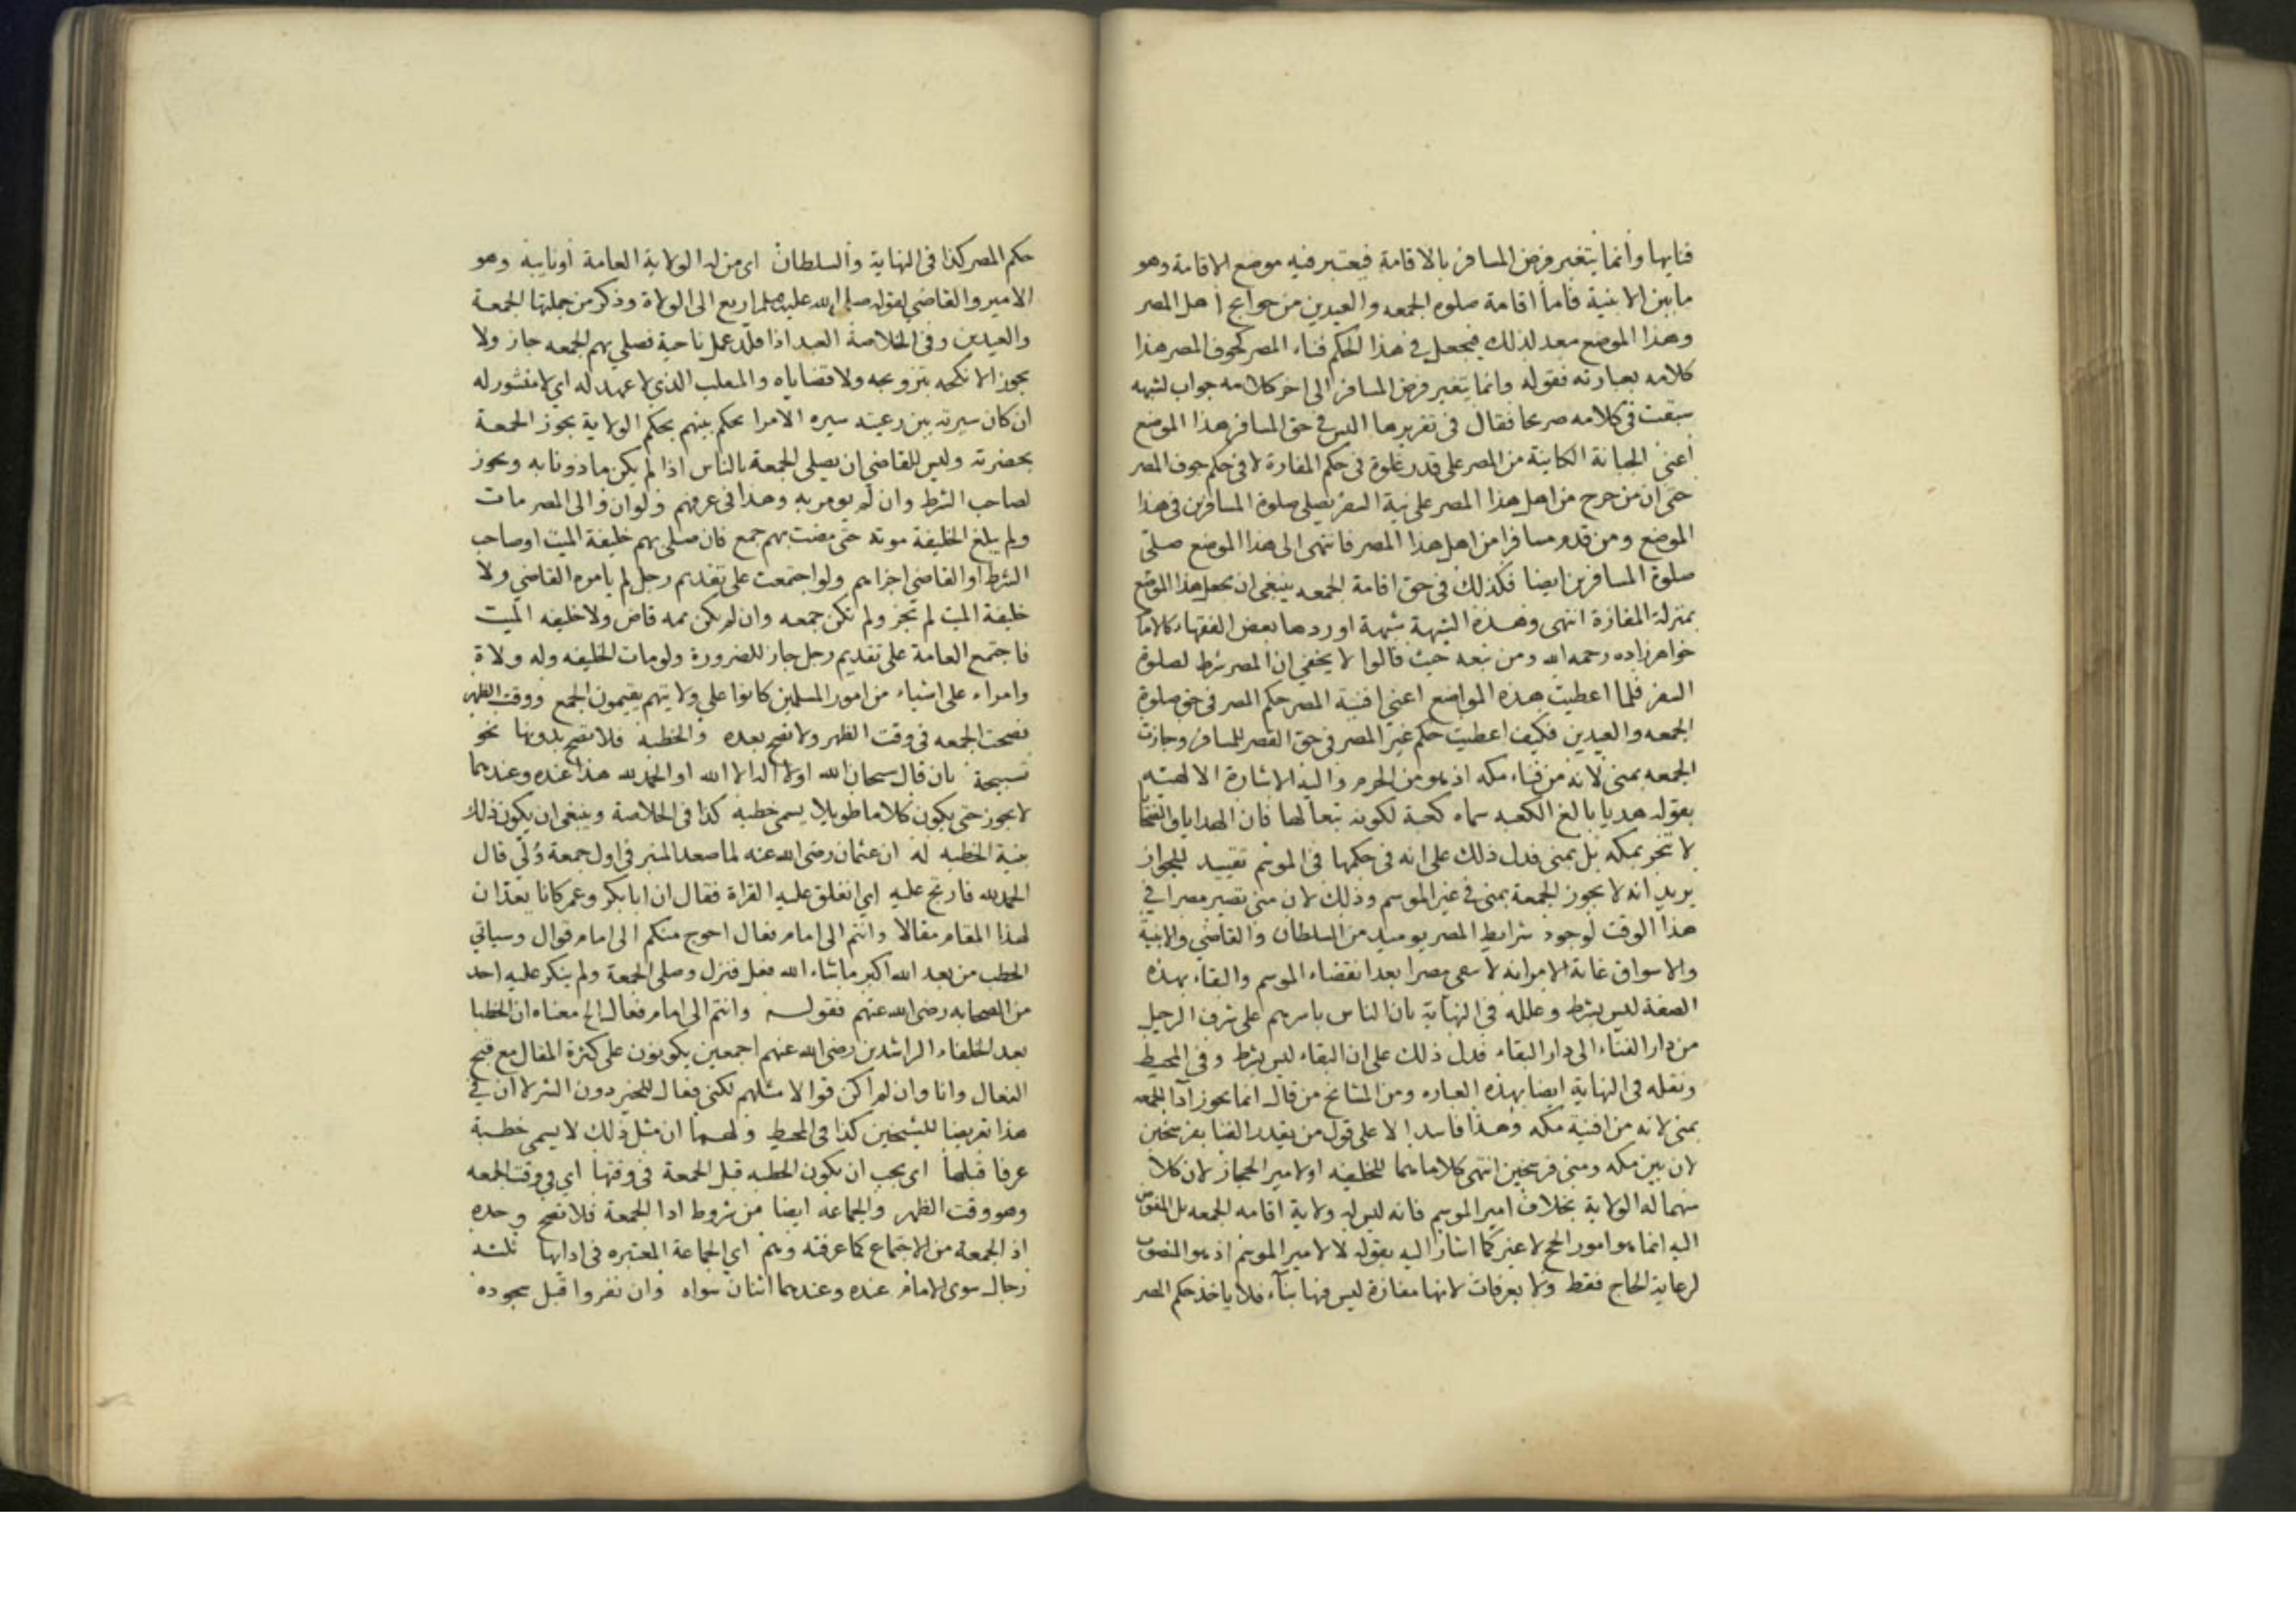 فنايها وانما يتغير فرض المسافر بالاقامة فيعتبر فيه موضع الاقامة وهو
ما بين الابنية فاما اقامة صلوه الجمعه والعيدين من حوايج اهل المصر
وهذا الموضع معد لذلك فيجعل في هذا الحكم فناء المصر كجوف المصر هذا
كلامه بعبارته فقوله وانما يتغير فرض المسافر الى اخر كلامه جواب لشبهه
سبقت في كلامه صريحا فقال في تقريرها اليس في حق المسافر هذا الموضع
اعني الجبانة الكاينة من المصر على قدر غلوة في حكم المفازة لا في حكم جوف المصر
حتى ان من خرج من اهل هذا المصر على نية السفر يصلي صلوة المسافرين في هذا
الموضع ومن قدم مسافرا من اهل هذا المصر فانتهى الى هذا الموضع صلى
صلوة المسافرين ايضا فكذلك في حق اقامة الجمعه ينبغي ان يجعل هذا الموضع
بمنزلة المفازة انتهى وهذه الشبهة شبهة اوردها بعض الفقهاء كالامام
خواهرزاده رحمه الله ومن تبعه حيث قالوا لا يخفى ان المصر شرط لصلوة
السفر فلما اعطيت هذه المواضع اعني افنية المصر حكم المصر في حق صلوة
الجمعه والعيدين فكيف اعطيت حكم غير المصر في حق القصر للمسافر وجازت
الجمعه بمنى لانه من فناء مكه اذ هو من الحرم واليه الاشارة الالهيته
بقوله هديا بالغ الكعبه سماه كعبة لكونه تبعا لها فان الهدايا والضحايا
لا تنحر بمكه بل بمنى فدل ذلك على انه في حكمها في الموسم تقييد للجواز
يريد انه لا يجوز الجمعة بمنى في غير الموسم وذلك لان منى تصير مصرا في
هذا الوقت لوجود شرايط المصر يوميذ من السلطان والقاضي والابنية
والاسواق غاية الامر انه لا يبقى مصرا بعد انقضاء الموسم والبقاء بهذه
الصفة ليس بشرط وعلله في النهاية بان الناس باسرهم على شرف الرحيل
من دار الفناء الى دار البقاء فدل ذلك على ان البقاء ليس بشرط وفي المحيط
ونقله في النهاية ايضا بهذه العباره ومن المشايخ من قال انما يجوز اداء الجمعه
بمنى لانه من افنية مكه وهذا فاسد الا على قول من يقدر الفنا بفرسخين
لان بين مكه ومنى فرسخين انتهى كلامهما للخليفه او لامير الحجاز لان كلا
منهما له الولاية بخلاف امير الموسم فانه ليس له ولاية اقامه الجمعه بل المفوض
اليه انما هو امور الحج لا غير كما اشار اليه بقوله لا لامير الموسم اذ هو المنصوب
لرعاية الحاج فقط ولا بعرفات لانها مفازة ليس فيها بناء فلا ياخذ حكم المصر
حكم المصر كذا في النهاية والسلطان اي من له الولاية العامة او نايبه وهو
الامير والقاضي لقوله صلى الله عليه وسلم اربع الى الولاة وذكر من جملتها الجمعة
والعيدين وفي الخلاصة العبد اذا قلد عمل ناحية فصلى بهم الجمعه جاز ولا
يجوز الانكحه بتزويجه ولا قضاياه والمتغلب الذي لا عهد له اي لا منشور له
ان كان سيرته بين رعيته سيره الامرا يحكم بينهم بحكم الولاية يجوز الجمعة
بحضرته وليس للقاضي ان يصلي الجمعة بالناس اذا لم يكن ماذونا به ويجوز
لصاحب الشرط وان لم يومر به وهذا في عرفهم ولو ان والي المصر مات
ولم يبلغ الخليفة موته حتى مضت بهم جمع فان صلى بهم خليفة الميت او صاحب
الشرط او القاضي اجزاهم ولو اجتمعت على تقديم رجل لم يامره القاضي ولا
خليفة الميت لم تجز ولم تكن جمعه وان لم يكن ثمه قاض ولا خليفه الميت
فاجتمع العامة على تقديم رجل جاز للضرورة ولو مات الخليفه وله ولاة
وامراء على اشياء من امور المسلمين كانوا على ولايتهم يقيمون الجمع ووقت الظهر
فصحت الجمعه في وقت الظهر ولا تصح بعده والخطبه فلا تصح بدونها نحو
تسبيحة بان قال سبحان الله او لا اله الا الله او الحمد لله هذا عنده وعندهما
لا يجوز حتى يكون كلاما طويلا يسمى خطبه كذا في الخلاصة وينبغي ان يكون ذلك
بنية الخطبه له ان عثمان رضى الله عنه لما صعد المنبر في اول جمعة ولي قال
الحمد لله فارتج عليه اي انغلق عليه القراة فقال ان ابا بكر وعمر كانا يعدان
لهذا المقام مقالا وانتم الى امام فعال احوج منكم الى امام قوال وسياتي
الخطب من بعد الله اكبر ما شاء الله فعل فنزل وصلى الجمعة ولم ينكر عليه احد
من الصحابه رضى الله عنهم فقوله وانتم الى امام فعال الخ معناه ان الخطبا
بعد الخلفاء الراشدين رضى الله عنهم اجمعين يكونون على كثرة المقال مع قبح
الفعال وانا وان لم اكن قوالا مثلهم لكني فعال للخير دون الشر لا ان في
هذا تعريضا للشيخين كذا في المحيط ولهما ان مثل ذلك لا يسمى خطبة
عرفا قبلها اي يجب ان يكون الخطبه قبل الجمعة في وقتها اي في وقت الجمعه
وهو وقت الظهر والجماعه ايضا من شروط ادا الجمعة فلا تصح وحده
اذ الجمعة من الاجتماع كما عرفته وهم اي الجماعة المعتبره في ادايها ثلثه
رجال سوى الامام عنده وعندهما اثنان سواه وان نفروا قبل سجوده